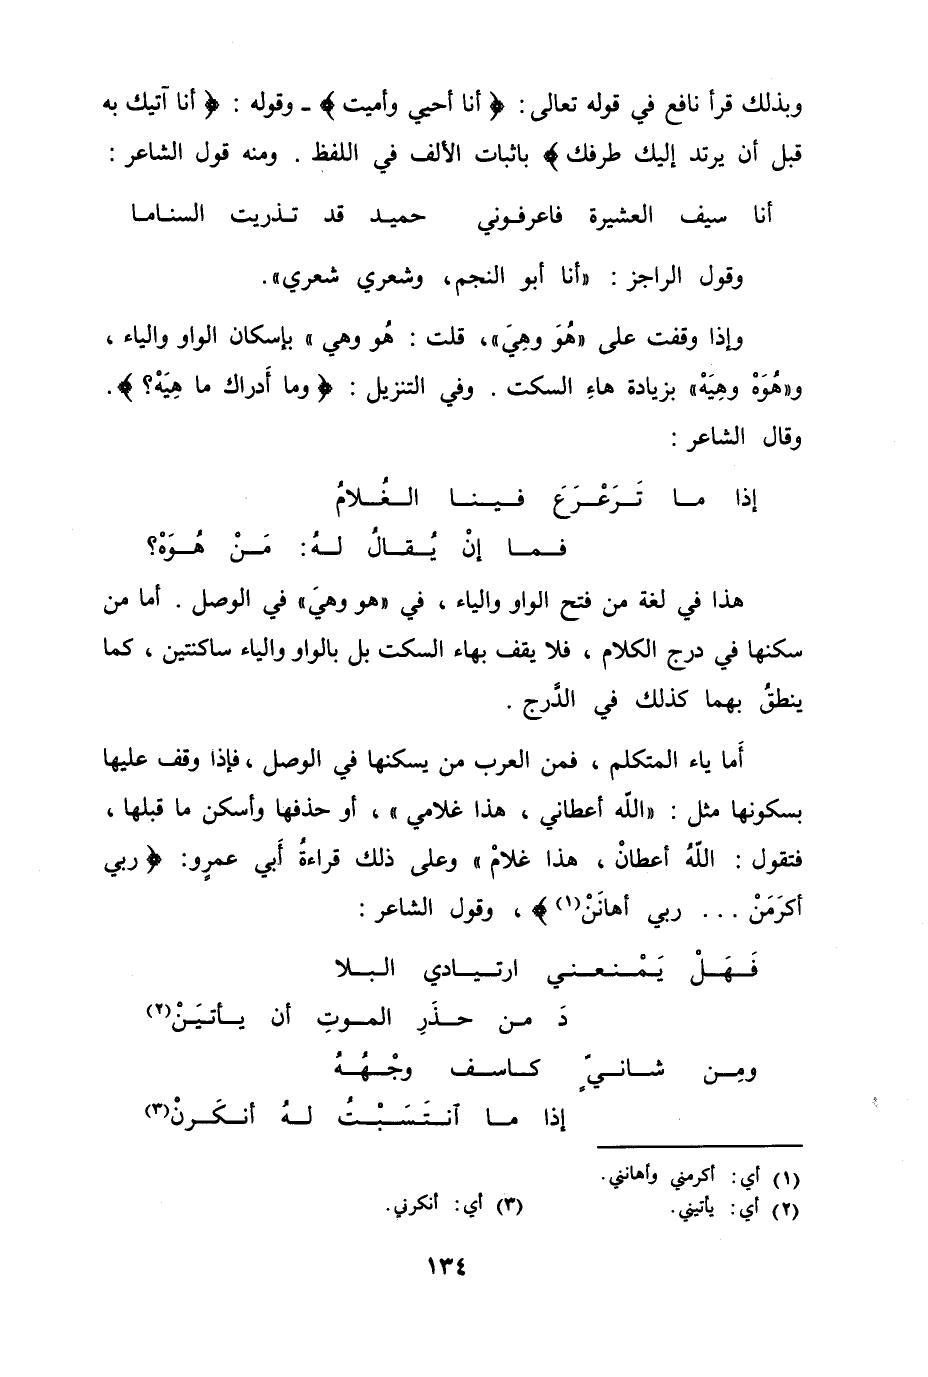 وبذلك قرأ نافع في قوله تعالى: ﴿ أنا أحيي وأميت ﴾ ـ وقوله : ﴿ أنا آتيك به
قبل أن يرتد إليك طرفك ﴾ باثبات الألف في اللفظ . ومنه قول الشاعر :
أنا سيف العشيرة فاعرفوني حميد قد تذريت السناما
وقول الراجز : «أنا أبو النجم، وشعري شعري».
وإذا وقفت على «هُوَ وهِيَ»، قلت : هُو وهي » بإسكان الواو والياء ،
و«هُوَهْ وهِيَهْ» بزيادة هاءِ السكت . وفي التنزيل : ﴿ وما أَدراك ما هِيَهْ؟ ﴾.
وقال الشاعر :
إذا ما تَرَعْرَعَ فينا الغُلامُ
فما إنْ يُقالُ لهُ: مَنْ هُوَهْ؟
هذا في لغة من فتح الواو والياء ، في «هو وهيَ» في الوصل . أما من
سكنها في درج الكلام ، فلا يقف بهاء السكت بل بالواو والياء ساكنتين ، كما
ينطقُ بهما كذلك في الدَّرج .
أَما ياء المتكلم ، فمن العرب من يسكنها في الوصل ، فإذا وقف عليها
بسكونها مثل : «اللّه أعطاني ، هذا غلامي » ، أو حذفها وأسكن ما قبلها ،
فتقول : اللّهُ أعطانْ ، هذا غلامْ » وعلى ذلك قراءةُ أَبي عمرٍو: ﴿ ربي
أكرَمَنْ ... ربي أهانَنْ(١) ﴾ ، وقول الشاعر :
فَهَلْ يَمْنعني ارتيادي البلا
دَ من حذَرِ الموتِ أن يأتيَنْ(٢)
ومِن شانيٍّ كاسف وجْهُهُ
إذا ما آنتَسَبْتُ لهُ أنكَرنْ(٣)
(١) أي: أكرمني وأهانني.
(٢) أي: يأتيني. (٣) أي: أنكرني.
١٣٤